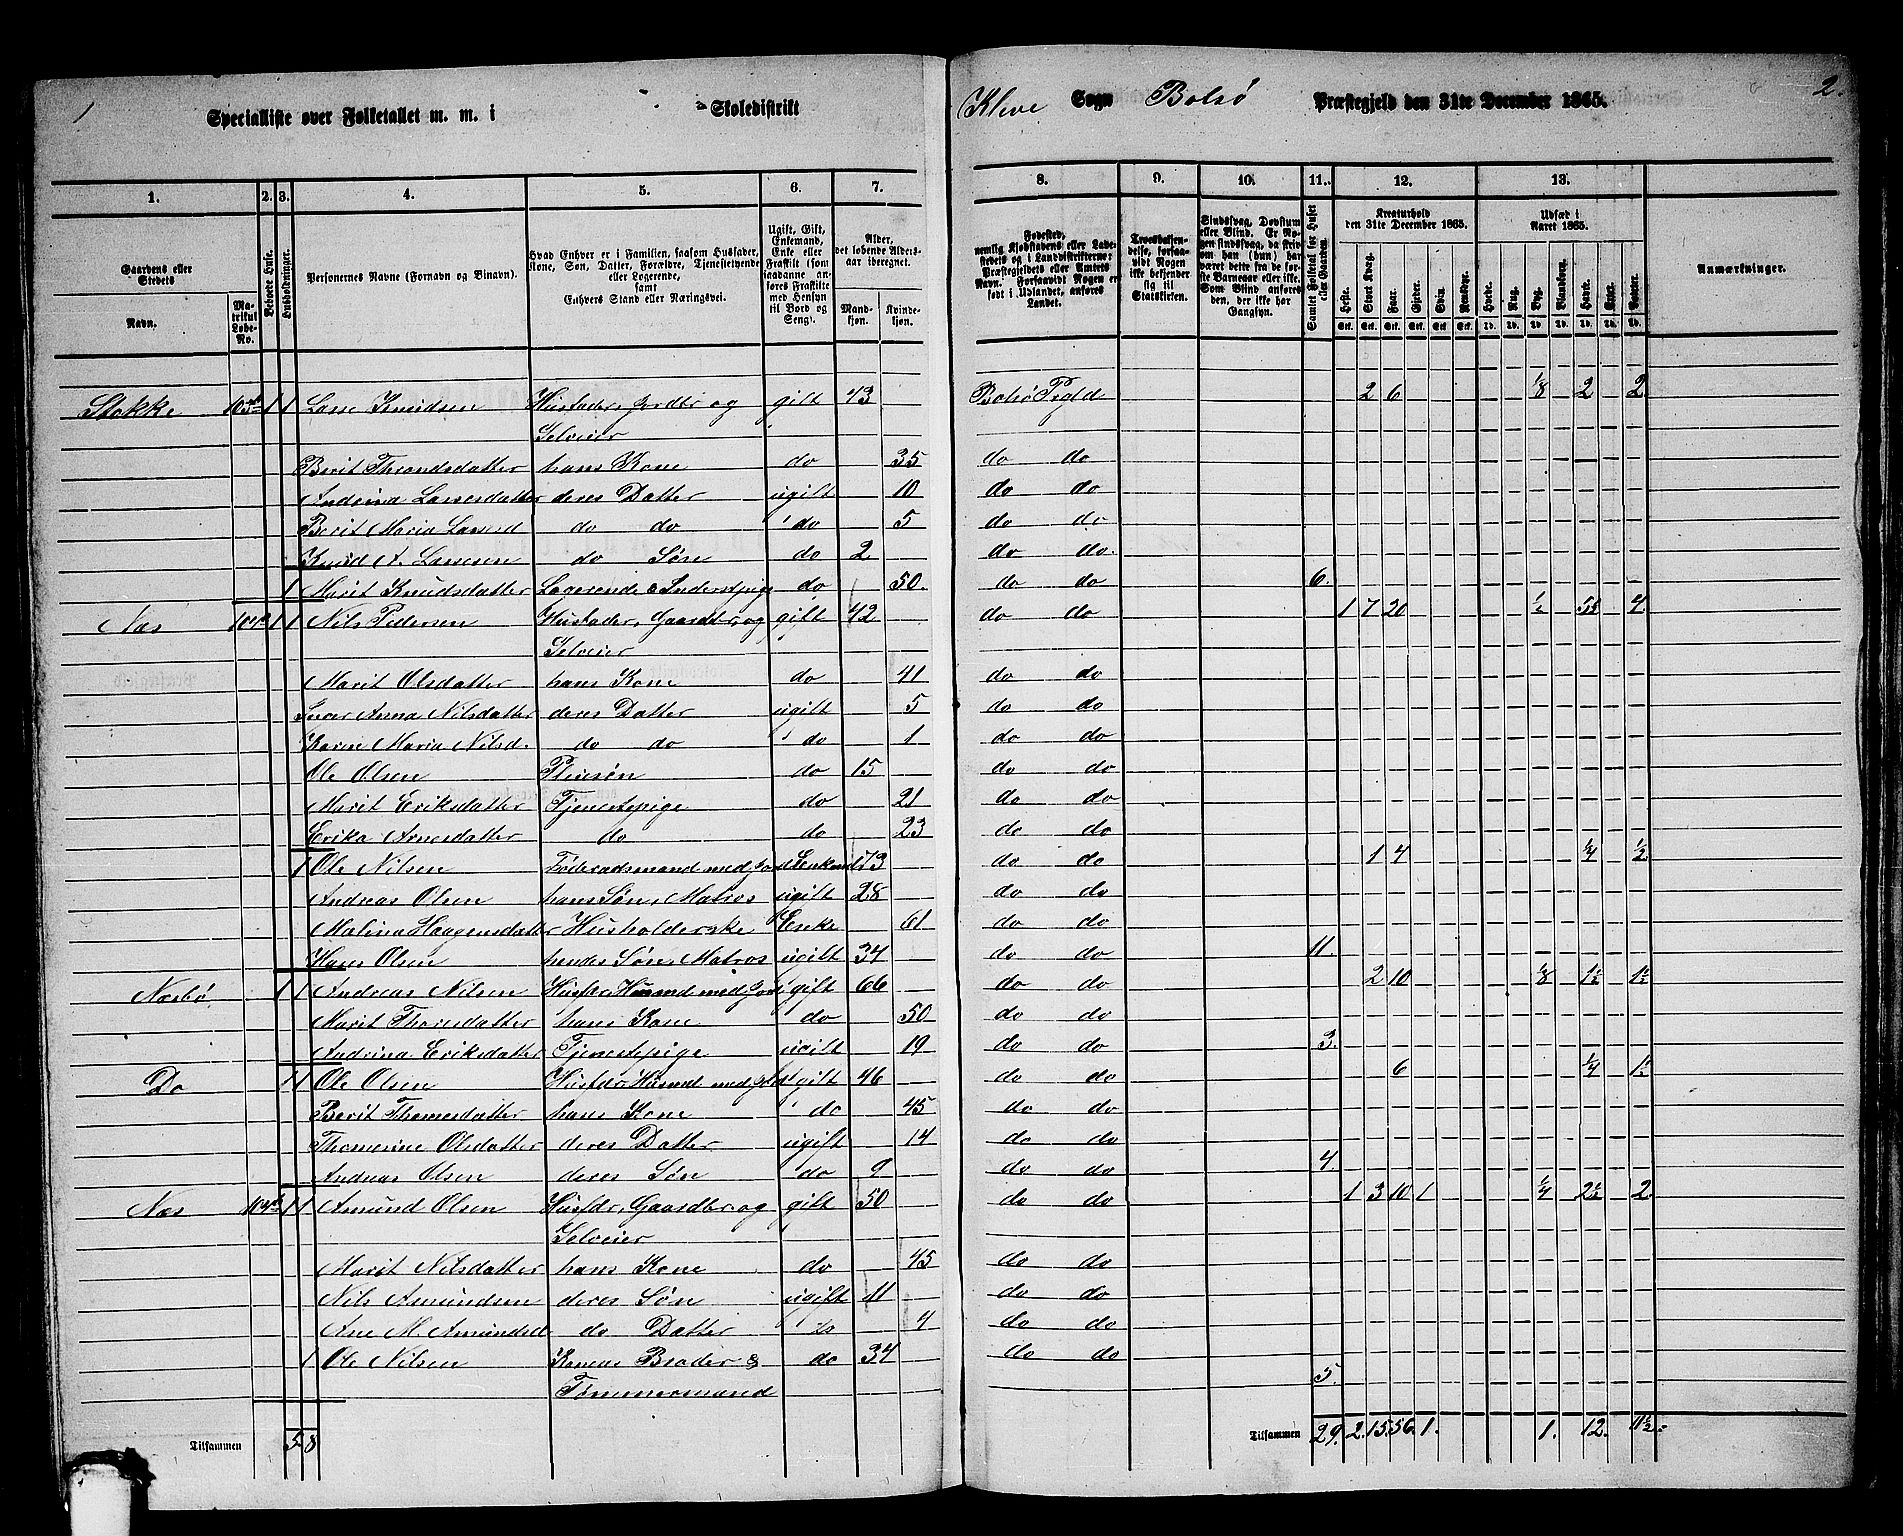 1
Specialliste over Folketallet m. m. i Skoledistrikt
Kleve Sogn Bolsø Præstegjeld den 31te December 1865.
2.
1. 2. 3. 4. 5. 6. 7. 8. 9. 10. 11. 12. 13.
Gaardens eller Stedets
Navn.
Matrikul Løbe-No.
Beboede Huse.
Husholdninger.
Personernes Navne (Fornavn og Binavn).
Hvad Enhver er i Familien, saasom Husfader, Kone, Søn, Datter, Forældre, Tjenestetyende eller Logerende, samt Enhvers Stand eller Næringsvei.
Ugift, Gift, Enkemand, Enke eller Fraskilt (som saadanne anføres Fraskilte med Hensyn til Bord og Seng).
Alder, det løbende Alders-aar iberegnet.
Mandkjøn. Kvindekjøn.
Fødested, nemlig Kjøbstadens eller Ladestedets og i Landdistrikterne: Præstegjeldets eller Amtets Navn. Forsaavidt Nogen er født i Udlandet, anføres Landet.
Troesbekjendelse, forsaavidt Nogen ikke bekjender sig til Statskirken.
Sindssvag, Døvstum eller Blind. Er Nogen sindssvag, da skrives om han (hun) har været dette fra de første Barneaar eller ikke. Som Blind anføres den, der ikke har Gangsyn.
Samlet Folketal for Huset eller Gaarden.
Kreaturhold den 31te December 1865.
Heste. Stort Kvæg. Faar. Gjeder. Svin. Rensdyr.
Udsæd i Aaret 1865.
Hvede. Rug. Byg. Blandkorn. Havre. Erter. Poteter.
Anmærkninger.
Stokke 1 1 Lasse Knudsen Husfader, Jordbr og gift 43 Bolsø Prgld. 2 6 1/8 2 2
Selveier
Berit Throndsdatter hans Kone do 35 do do
Andrina Lassesdatter deres Datter ugift 10 do do
Berit Maria Lassesd do do do 5 do do
Knud A. Lassesen do Søn do 2 do do
1 Marit Knudsdatter Logerende & Inderstpige do 50. do do 6.
Næs 1 1 Nils Pedersen Husfader, Gaardbr, og gift 42 do do 1 7 20 1/2 5 1/2 4
Selveier
Marit Olsdatter hans Kone do 41 do do
Anna Nilsdatter deres Datter ugift 5 do do
Karen Maria Nilsd. do do do 1 do do
Ole Olsen Pleiesøn do 15 do do
Marit Eriksdatter Tjenestepige do 21 do do
Erika Arnesdatter do do 23 do do
1 Ole Nilsen Føderaadsmand med Jord Enkemd 73 do do 1 4 1/4 1/2
Andreas Olsen hans Søn, Matros ugift 28 do do
Malina Haagensdatter Husholderske Enke 61 do do
Hans Olsen hendes Søn, Matros ugift 34 do do 11.
Næsbø 1 1 Andreas Nilsen Husfdr, Husmd med Jord gift 66 do do 2 10 1/8 1 1/2 1 1/2
Marit Thoresdatter hans Kone do 50 do do
Andrina Eriksdatter Tjenestepige ugift 19 do do 3.
Do 1 1 Ole Olsen Husfdr, Husmd med Jord gift 46 do do 6 1/4 1 1/2
Berit Thomesdatter hans Kone do 45 do do
Thomerine Olsdatter deres Datter ugift 14 do do
Andreas Olsen deres Søn do 9 do do 4.
Næs 1 1 Amund Olsen Husfdr, Gaardbr, og gift 50 do do 1 3 10 1 1/4 2 1/2 2
Selveier
Marit Nilsdatter hans Kone do 45 do do
Nils Amundsen deres Søn ugift 11 do do
Ane M. Amundsd do Datter do 4 do do
1 Ole Nilsen Konens Broder & do 34 do do
Tømmermand 5.
Tilsammen 5 8
Tilsammen 29. 2. 15. 56. 1. 1. 12. 11 1/2